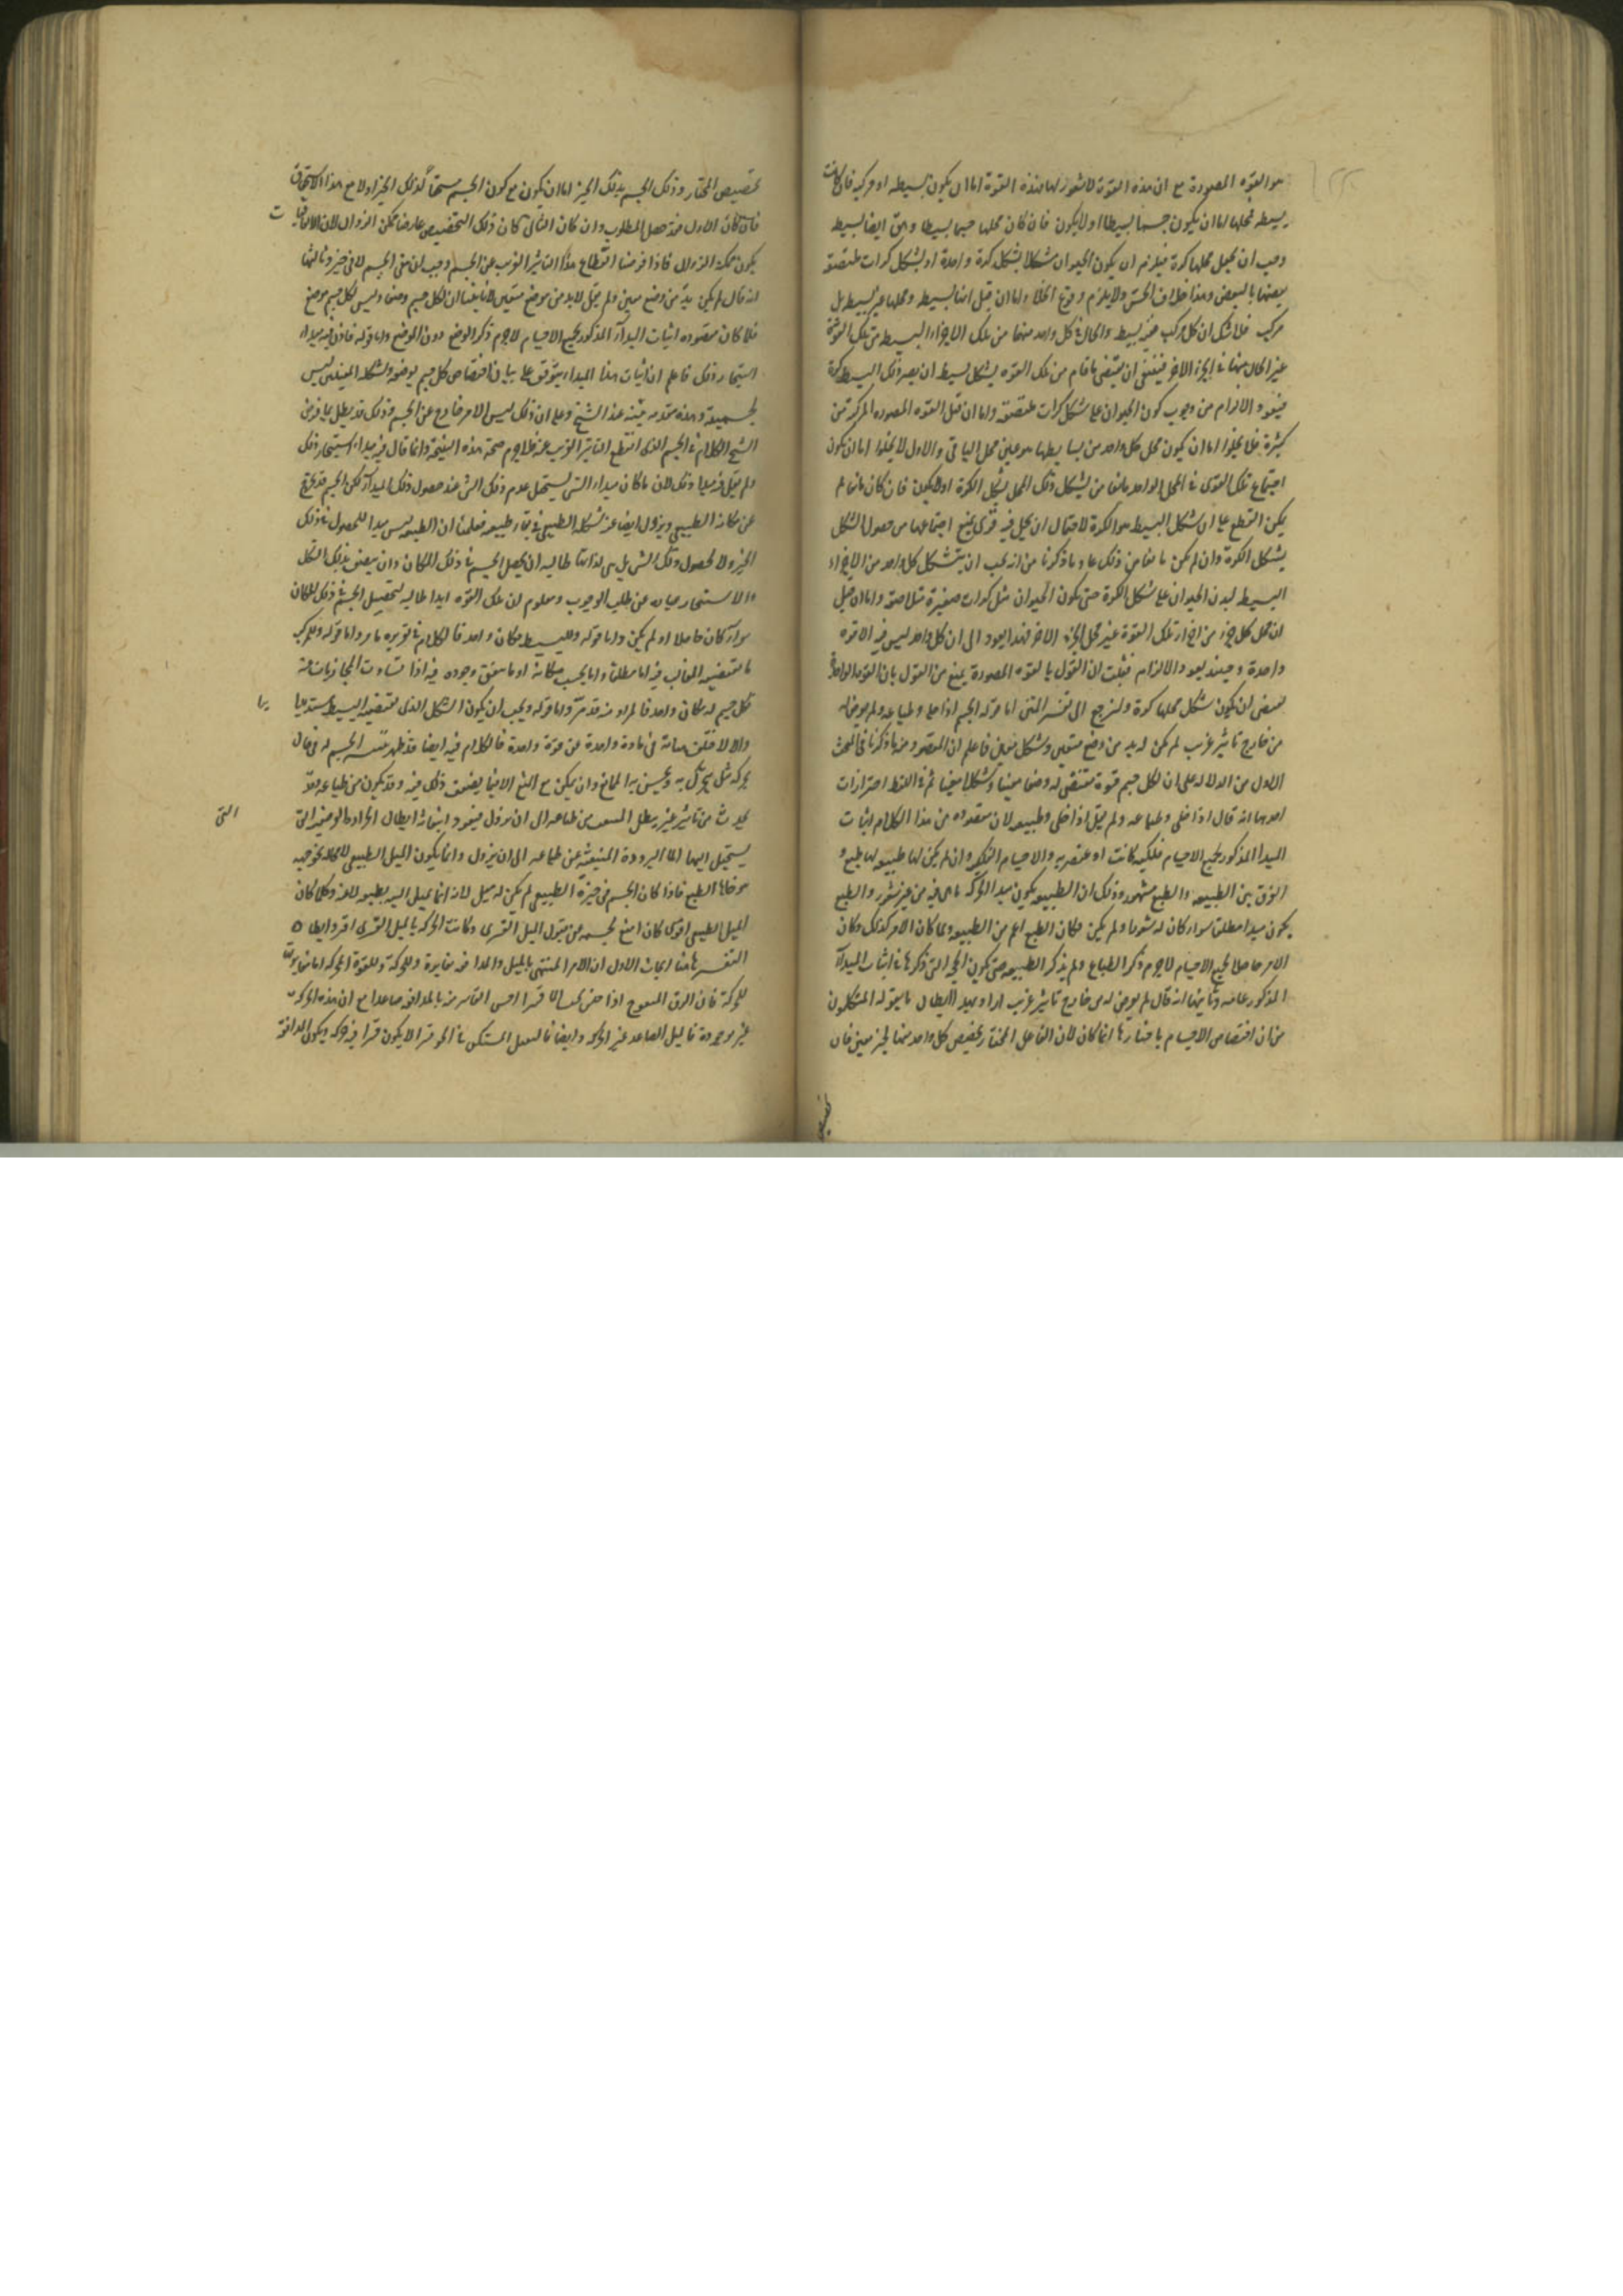 هو القوة المصورة مع ان هذه القوة لا شعور لها فهذه القوة اما ان يكون بسيطه او مركبه فان كانت
بسيطه فمحلها اما ان يكون جسما بسيطا او لا يكون فان كان محلها جسما بسيطا وهى ايضا بسيطه
وجب ان يجعل محلها كرة فيلزم ان يكون الحيوان متشكلا بشكل كرة واحدة او بشكل كرات ملتصقة
بعضها بالبعض وهذا خلاف الحس ولا يلزم وقوع الخلاء واما ان قيل انها بسيطه ومحلها غير بسيط بل
مركب فلا شك ان كل مركب ففيه بسيط والحال فى كل واحد منهما من تلك الاجزاء البسيطه من تلك القوة
غير الحال منها فى الجزء الاخر فينبغى ان يقتضى ما قام من تلك القوة بشكل بسيط ان يصير ذلك البسيط كرة
فيعود الالزام من وجوب كون الحيوان على شكل كرات ملتصقة واما ان قيل القوه المصوره المركبة من
كثيرة فلا يخلوا اما ان يكون محل كل واحد من بسايطها هو عين محل الباقى والاول لا يخلوا اما ان يكون
اجتماع تلك القوى فى المحل الواحد مانعا من تشكل ذلك المحل بشكل الكرة او لا يكون فان كان مانعا لم
يكن القطع على ان شكل البسيط هو الكرة لاحتمال ان يحل فيه قوى يمنع اجتماعها من حصول الشكل
بشكل الكرة وان لم يكن مانعا من ذلك عاد ما ذكرنا من انه يجب ان يتشكل كل واحد من الاجزاء
البسيط لبدن الحيوان على شكل الكرة حتى يكون الحيوان مثل كرات صغيرة متلاصقة واما ان قيل
ان محل كل جزء من اجزاء تلك القوة غير محل الجزء الاخر فهذا يعود الى ان كل واحد ليس فيه الا قوه
واحدة وحينئذ يعود الالزام فثبت ان القول بالقوه المصورة يمنع من القول بان القوة الواحدة
يقتضى ان يكون شكل محلها كرة ولنرجع الى تفسير المتن اما قوله الجسم اذا خلى وطباعه ولم يعرض له
من خارج تاثير غريب لم يكن له بد من وضع متعين وشكل متعين فاعلم ان المقصود منه ما ذكرنا فى البحث
الاول من الدلاله على ان لكل جسم قوة تقتضى له وضعا معينا وشكلا معينا ثم فى اللفظ احترازات
احدها انه قال اذا خلى وطباعه ولم يقل اذا خلى وطبيعه لان مقصوده من هذا الكلام اثبات
المبدا المذكور لجميع الاجسام فلكيه كانت او عنصريه والاجسام الفلكيه وان لم يكن لها طبيعه لها طبع و
الفرق بين الطبيعه والطبع مشهور وذلك ان الطبيعه يكون مبدا لحركه ما هى فيه من غير شعور والطبع
يكون مبدا مطلقا سواء كان له شعور او لم يكن فكان الطبع اعم من الطبيعه ولما كان الامر كذلك وكان
الامر حاصلا لجميع الاجسام لا جرم ذكر الطباع ولم يذكر الطبيعه حتى يكون الحجة التى ذكرها فى اثبات المبدا
المذكور عامه وثانيها انه قال لم يعرض له من خارج تاثير غريب اراد بهذا ابطال ما يقوله المتكلمون
من ان اختصاص الاجسام باحيازها انما كان لان الفاعل المختار يخصص كل واحد منها لحيز معين فان
تخصيص المختار وذلك الجسم بذلك الحيز اما ان يكون مع كون الجسم مستحقا لذلك الحيز او لا مع هذا الاستحقاق
فان كان الاول فقد حصل المطلوب وان كان الثانى كان ذلك التخصيص عارضا ممكن الزوال
يكون ممكنة الزوال فاذا فرضنا انقطاع هذا التاثير الغريب عن الجسم وجب ان يبقى الجسم لا فى حيز وثالثها
انه قال لم يكن بد من وضع معين ولم يقل لا بد من موضع متعين لانا بينا ان لكل جسم وضعا وليس لكل جسم موضع
فلما كان مقصوده اثبات المبدا المذكور لجميع الاجسام لا جرم ذكر الوضع دون الموضع واما قوله فاذن فيه مبداء
استيجاب ذلك فاعلم ان اثبات هذا المبداء يتوقف على بيان اختصاص كل جسم بوضعه وشكله المعينين ليس
لجسميته وهذه مقدمه مبينه عند الشيخ وعلى ان ذلك ليس لامر خارج عن الجسم وذلك قد بطل بما فرض
الشيخ الكلام فى الجسم الذى انقطع التاثير الغريب عنه فلا جرم صحت هذه النتيجة وانما قال فيه مبداء استيجاب ذلك
ولم يقل فيه مبداء ذلك لان ما كان مبداء الشى يستحيل عدم ذلك الشى عند حصول ذلك المبدا لكن الجسم قد يخرج
عن مكانه الطبيعى ويزول ايضا عنه شكله الطبيعى فى بقاء طبيعه فعلمنا ان الطبيعه ليس مبدا للحصول فى ذلك
الحيز ولا لحصول ذلك الشى بل هى لذاتها طالبه ان يحصل الجسم فى ذلك المكان وان يتصف بذلك الشكل
والاستيجاب عباره عن طلب الوجوب ومعلوم ان تلك القوه ابدا طالبه لتحصيل الجسم فى ذلك المكان
سواء كان حاصلا او لم يكن واما قوله وللبسيط مكان واحد فالكلام فى تقريره ما مر واما قوله وللمركب
ما يقتضيه الغالب فيه اما مطلقا واما بحسب مكانه او ما يتفق وجوده فيه اذا تساوت المجاذبات عنه
فكل جسم له مكان واحد فالمراد منه قد مر واما قوله ويجب ان يكون الشكل الذى يقتضيه البسيط مستديرا
والا لاختلفت هيئاته فى مادة واحدة عن قوة واحدة فالكلام فيه ايضا قد ظهر تنبيه الجسم له فى حال
تحركه ميل يتحرك به ويحس به الممانع وان يمكن مع المنع الا فيما يضعف ذلك فيه وقد يكون من طباعه وقد
يحدث من تاثير غيره فيبطل المنبعث من طباعه الى ان يزول فيعود انبعاثه ابطال الحرارة العرضيه التى
يستحيل اليها الماء البرودة المنبعثه عن طباعه الى ان يزول وانما يكون الميل الطبيعى لا محالة نحو جهه
يتوخاها الطبع فاذا كان الجسم فى حيزه الطبيعى لم يكن له ميل لانه انما يميل اليه بطبعه لا عنه وكلما كان
الميل الطبيعى اقوى كان امنع لجسمه عن قبول الميل القسرى وكانت الحركه بالميل القسرى افتر وابطاء
التفسير هاهنا ابحاث الاول ان الامر المسمى بالميل والمدافعه مغايرة وللحركة وللقوة المحركه اما مغايرته
للحركة فان الزق المنفوخ اذا حبس تحت الماء قسرا احس القاسر منه بالمدافعه صاعدا مع ان هذه الحركة
غير موجودة فالميل الصاعد غير الحركه وايضا فالثقيل المسكن فى الجو قسرا لا يكون فيه حركه ويكون المدافعة
التى